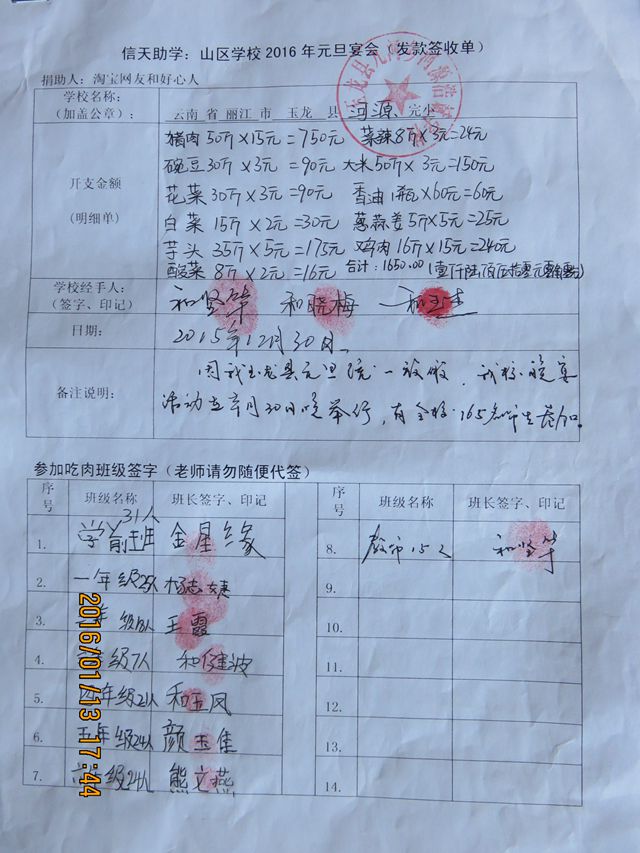 信天助学：山区学校2016年元旦宴会（发款签收单）
捐助人：淘宝网友和好心人
学校名称：
（加盖公章）：
云南 省 丽江 市 玉龙 县 河源 、完小
开支金额
（明细单）
猪肉50斤×15元=750元 菜辣8斤×3元=24元
碗豆30斤×3元=90元 大米50斤×3元=150元
花菜30斤×3元=90元 香油1瓶×60元=60元
白菜15斤×2元=30元 葱蒜姜5斤×5元=25元
芋头35斤×5元=175元 鸡肉16斤×15元=240元
酸菜8斤×2元=16元 合计：1650.00
学校经手人：
（签字、印记）
和坚华 和晓梅
日期：
2015年12月30日
备注说明：
因我玉龙县元旦统一放假，我校晚宴
活动在本月30日晚举行，有全校165名师生参加。
参加吃肉班级签字（老师请勿随便代签）
序号 班级名称 班长签字、印记 序号 班级名称 班长签字、印记
1. 学前班31人 金星缘 8. 教师15人 和坚华
2. 一年级 杨志婕 9.
3. 王霞 10.
4. 级7人 和健波 11.
5. 四年级21人 和五凤 12.
6. 五年级24人 颜玉佳 13.
7. 级24人 熊文燕 14.
2016/01/13 17:44